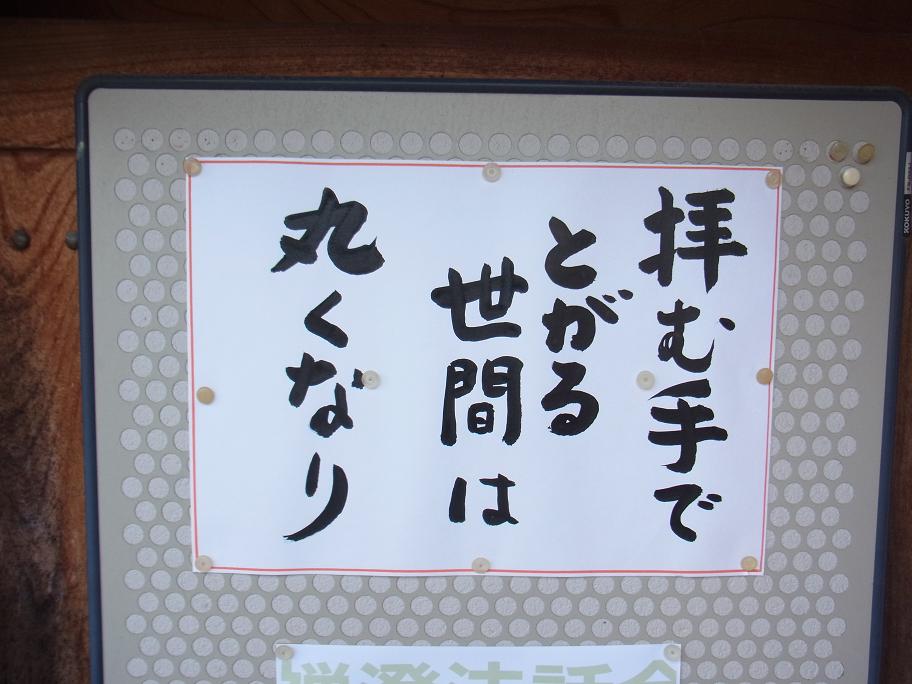 拝む手で
とがる
世間は
丸くなり
KOKUYO